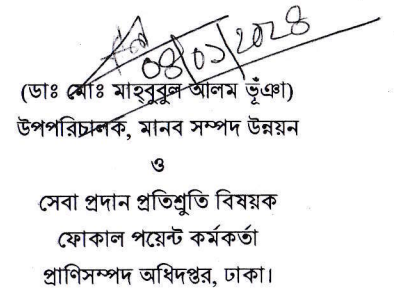 ০৪|০১|২০২৪
(ডাঃ মোঃ মাহ্‌বুবুল আলম ভূঁঞা)
উপপরিচালক, মানব সম্পদ উন্নয়ন
ও
সেবা প্রদান প্রতিশ্রুতি বিষয়ক
ফোকাল পয়েন্ট কর্মকর্তা
প্রাণিসম্পদ অধিদপ্তর, ঢাকা।